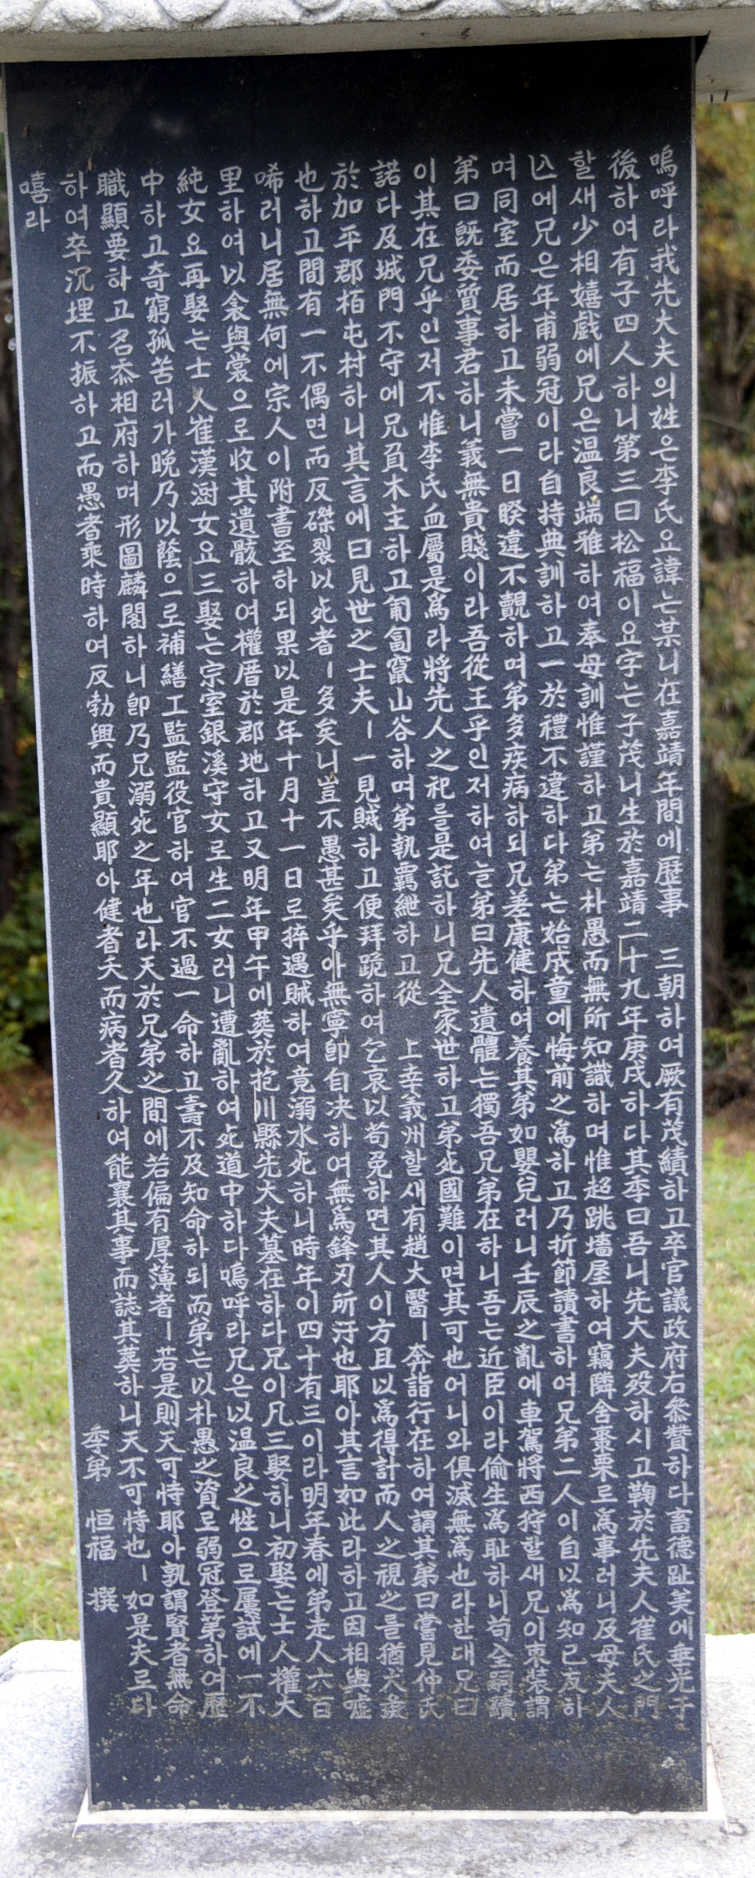 嗚呼라我先大夫의姓은李氏요諱는某니在嘉靖年間에歷事 三朝하여厥有茂績하고卒官議政府右參贊하다畜德趾美에垂光于
後하여有子四人하니第三曰松福이요字는子茂니生於嘉靖二十九年庚戌하다其季曰吾니先大夫歿하시고鞠於先夫人崔氏之門
할새少相嬉戱에兄은温良端雅하여奉母訓惟謹하고弟는朴愚而無所知識하며惟超跳墻屋하여竊隣舍棗栗로爲事러니及母夫人
亾에兄은年甫弱冠이라自持典訓하고一於禮不違하다弟는始成童에悔前之爲하고乃折節讀書하여兄弟二人이自以爲知己友하
며同室而居하고未嘗一日暌違不覿하며弟多疾病하되兄差康健하여養其弟如嬰兒러니壬辰之亂에車駕將西狩할새兄이束裝謂
弟曰旣委質事君하니義無貴賤이라吾從王乎인저하여늘弟曰先人遺體는獨吾兄弟在하니吾는近臣이라偷生爲恥하니苟全嗣續
이其在兄乎인저不惟李氏血屬是爲라將先人之祀를是託하니兄全家世하고弟死國難이면其可也어니와俱滅無爲也라한대兄曰
諾다及城門不守에兄負木主하고匍匐竄山谷하며弟執羈紲하고從 上幸義州할새有趙大醫ㅣ奔詣行在하여謂其弟曰嘗見仲氏
於加平郡栢屯村하니其言에曰見世之士夫ㅣ一見賊하고便拜跪하여乞哀以苟免하면其人이方且以爲得計而人之視之를猶犬彘
也하고間有一不偶면而反磔裂以死者ㅣ多矣니豈不愚甚矣乎아無寧卽自決하여無爲鋒刃所汙也耶아其言如此라하고因相與噓
唏러니居無何에宗人이附書至하되果以是年十月十一日로猝遇賊하여竟溺水死하니時年이四十有三이라明年春에弟走人六百
里하여以衾與裳으로收其遺骸하여權厝於郡地하고又明年甲午에葬於抱川縣先大夫墓在하다兄이凡三娶하니初娶는士人權大
純女요再娶는士人崔漢澍女요三娶는宗室銀溪守女로生二女러니遭亂하여死道中하다嗚呼라兄은以温良之性으로屢試에一不
中하고奇窮孤苦러가晩乃以蔭으로補繕工監監役官하여官不過一命하고壽不及知命하되而弟는以朴愚之資로弱冠登第하여歷
職顯要하고名忝相府하며形圖麟閣하니卽乃兄溺死之年也라天於兄弟之間에若偏有厚薄者ㅣ若是則天可恃耶아孰謂賢者無命
하여卒沉埋不振하고而愚者乘時하여反勃興而貴顯耶아健者夭而病者久하여能襄其事而誌其葬하니天不可恃也ㅣ如是夫로다
噫라
季弟 恒福 撰